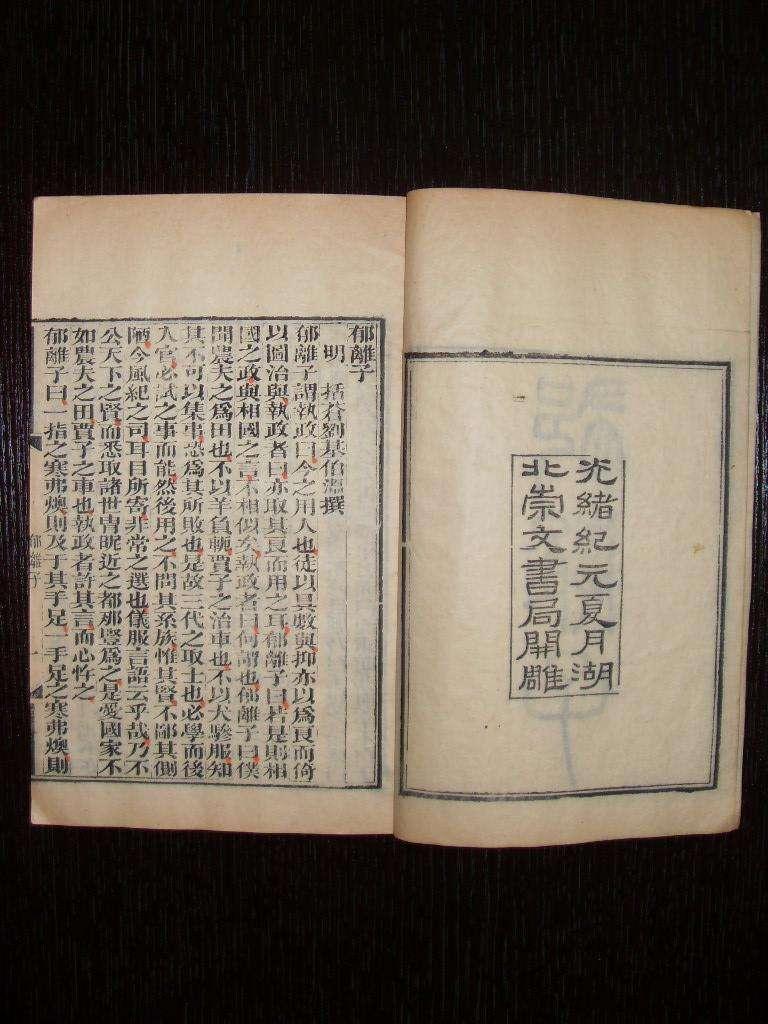 光緒紀元夏月湖
北崇文書局開雕
郁離子
明 括蒼劉基伯溫撰
郁離子謂執政曰今之用人也徒以具數與抑亦以爲良而倚
以圖治與執政者曰亦取其良而用之耳郁離子曰若是則相
國之政與相國之言不相似矣執政者曰何謂也郁離子曰僕
聞農夫之爲田也不以羊負軛賈子之治車也不以犬驂服知
其不可以集事恐爲其所敗也是故三代之取士也必學而後
入官必試之事而能然後用之不問其系族惟其賢不鄙其側
陋今風紀之司耳目所寄非常之選也儀服言語云乎哉乃不
公天下之賢而悉取諸世胄昵近之都那豎爲之是愛國家不
如農夫之田賈子之車也執政者許其言而心忤之
郁離子曰一指之寒弗燠則及于其手足一手足之寒弗燠則
郁離子 一